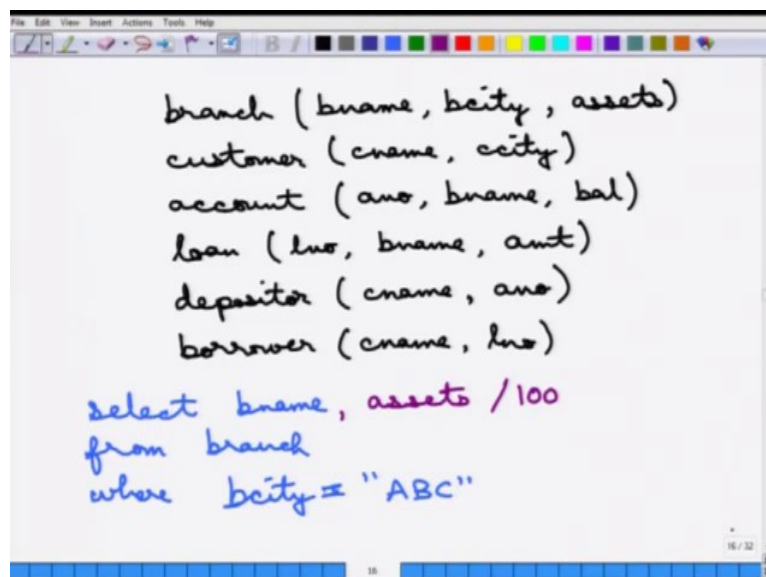 File Edit View Insert Actions Tools Help
branch (bname, bcity, assets)
customer (cname, ccity)
account (ano, bname, bal)
loan (lno, bname, amt)
depositor (cname, ano)
borrower (cname, lno)
select bname, assets /100
from branch
where bcity = "ABC"
16/32
16